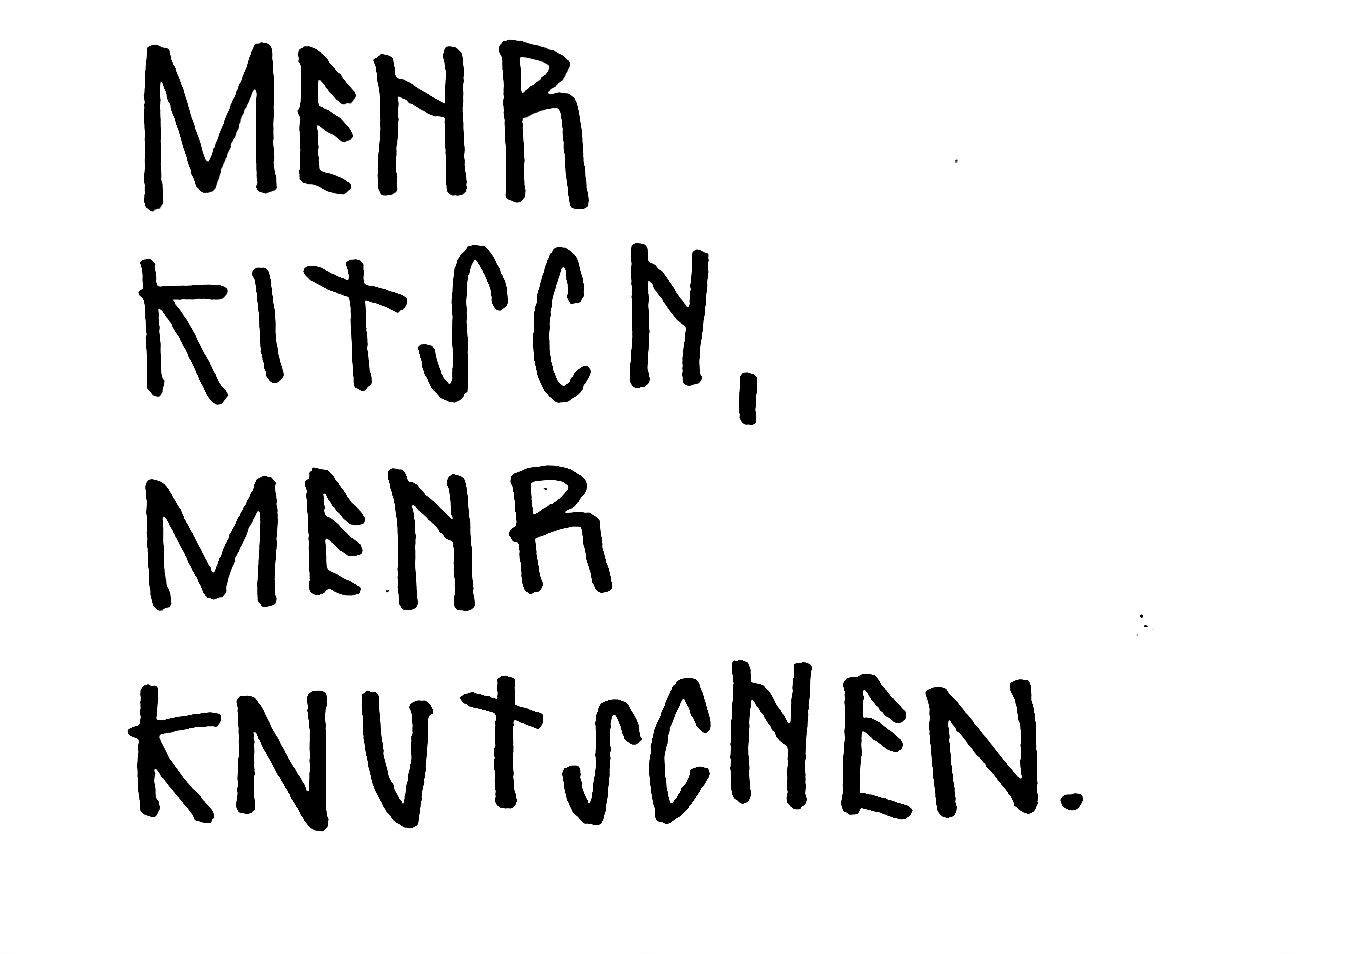 MEHR
KITSCH,
MEHR
KNUTSCHEN.